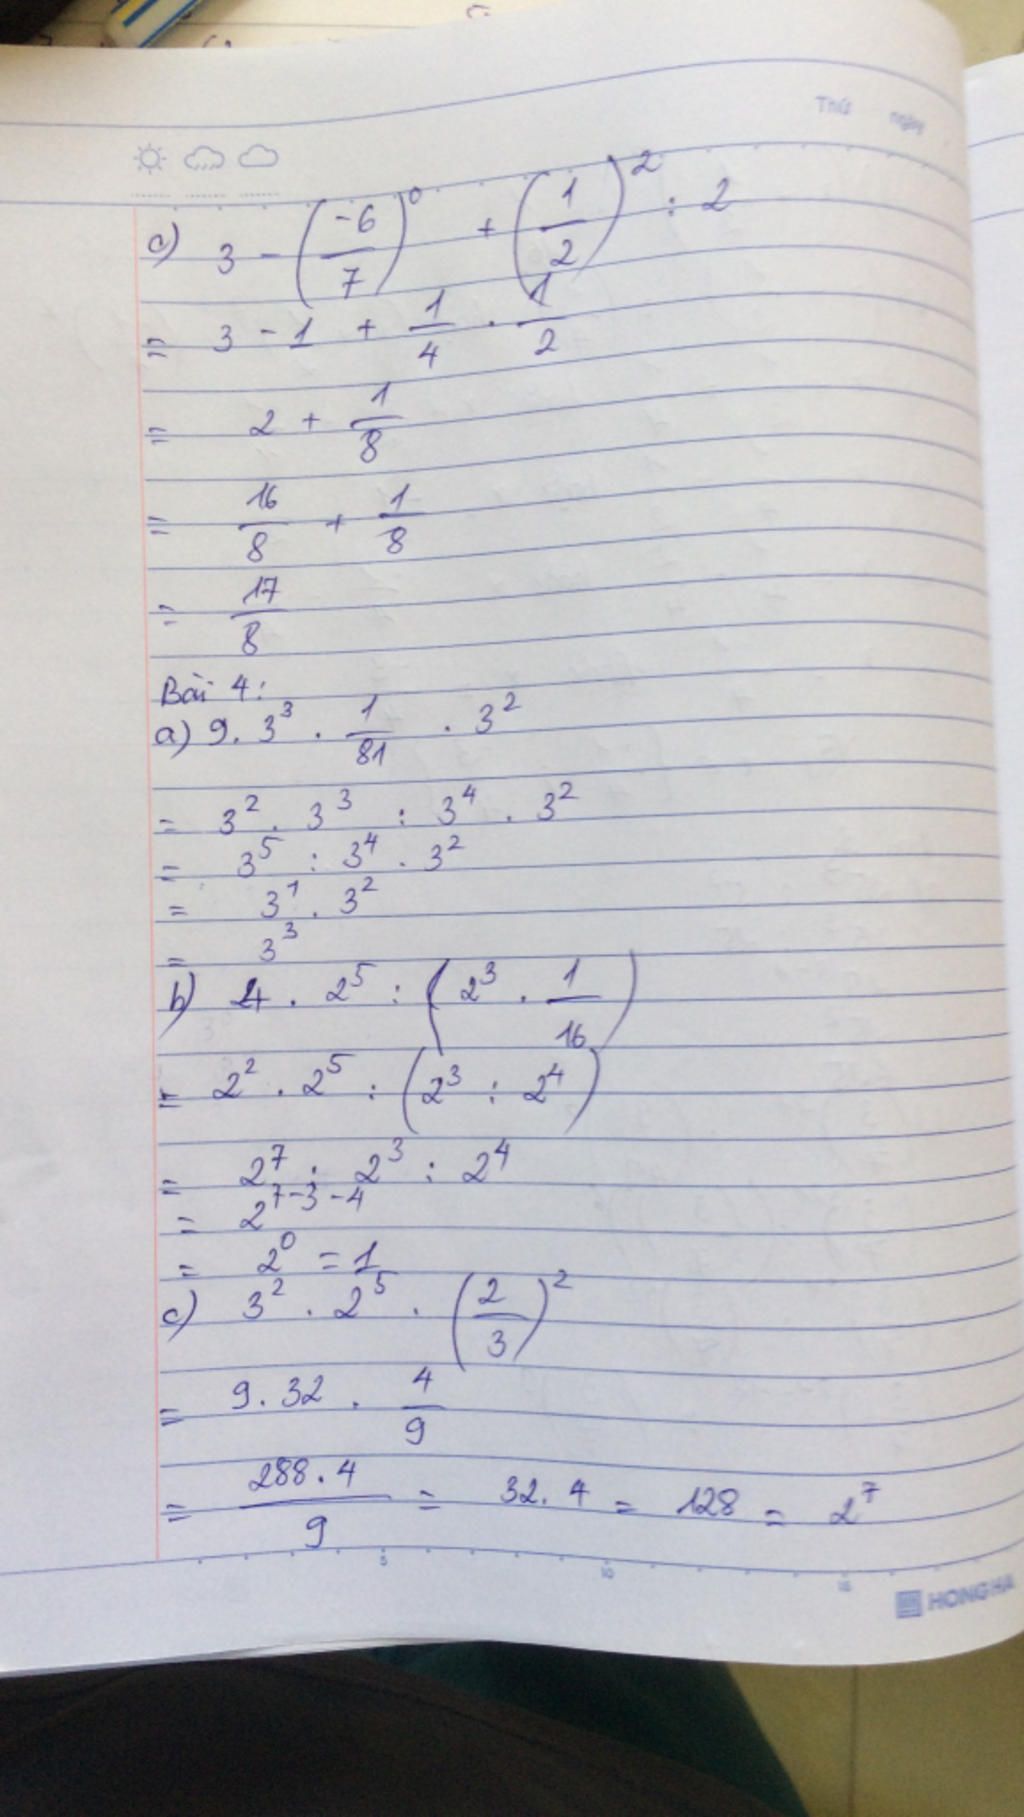 Thứ ngày
c) 3 - (-6/7)^0 + (1/2)^2 : 2
= 3 - 1 + 1/4 . 1/2
= 2 + 1/8
= 16/8 + 1/8
= 17/8
Bài 4:
a) 9 . 3^3 . 1/81 . 3^2
= 3^2 . 3^3 : 3^4 . 3^2
= 3^5 : 3^4 . 3^2
= 3^1 . 3^2
= 3^3
b) 4 . 2^5 : (2^3 . 1/16)
= 2^2 . 2^5 : (2^3 : 2^4)
= 2^7 : 2^3 : 2^4
= 2^7-3-4
= 2^0 = 1
c) 3^2 . 2^5 . (2/3)^2
= 9 . 32 . 4/9
= 288 . 4/9 = 32 . 4 = 128 = 2^7
5 10 15
HONG HA